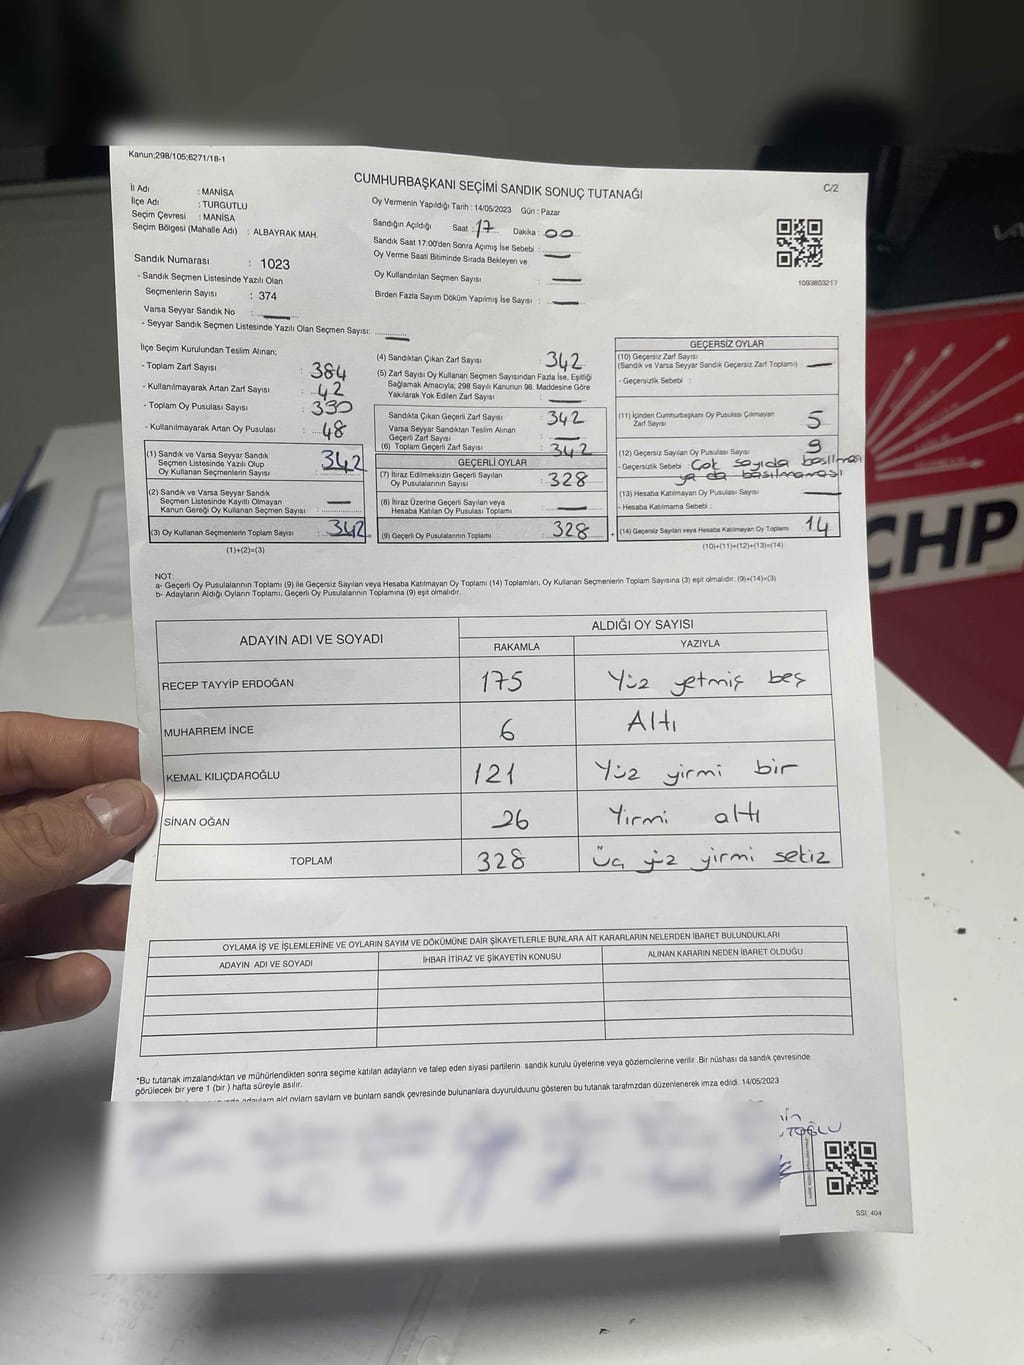 Kanun;298/105;6271/18-1
CUMHURBAŞKANI SEÇİMİ SANDIK SONUÇ TUTANAĞI
C/2
İl Adı : MANİSA
İlçe Adı : TURGUTLU
Seçim Çevresi : MANİSA
Seçim Bölgesi (Mahalle Adı) : ALBAYRAK MAH.
Sandık Numarası : 1023
- Sandık Seçmen Listesinde Yazılı Olan
Seçmenlerin Sayısı : 374
Varsa Seyyar Sandık No :
- Seyyar Sandık Seçmen Listesinde Yazılı Olan Seçmen Sayısı:
Oy Vermenin Yapıldığı Tarih : 14/05/2023 Gün : Pazar
Sandığın Açıldığı Saat : 17 Dakika : 00
Sandık Saat 17:00'den Sonra Açımış İse Sebebi :
Oy Verme Saati Bitiminde Sırada Bekleyen ve
Oy Kullandırılan Seçmen Sayısı
Birden Fazla Sayım Döküm Yapılmış İse Sayısı :
1093803217
İlçe Seçim Kurulundan Teslim Alınan;
- Toplam Zarf Sayısı : 384
- Kullanılmayarak Artan Zarf Sayısı : 42
- Toplam Oy Pusulası Sayısı : 390
- Kullanılmayarak Artan Oy Pusulası : 48
(1) Sandık ve Varsa Seyyar Sandık
Seçmen Listesinde Yazılı Olup
Oy Kullanan Seçmenlerin Sayısı : 342
(2) Sandık ve Varsa Seyyar Sandık
Seçmen Listesinde Kayıtlı Olmayan
Kanun Gereği Oy Kullanan Seçmen Sayısı :
(3) Oy Kullanan Seçmenlerin Toplam Sayısı : 342
(1)+(2)=(3)
(4) Sandıktan Çıkan Zarf Sayısı : 342
(5) Zarf Sayısı Oy Kullanan Seçmen Sayısından Fazla İse, Eşitliği
Sağlamak Amacıyla; 298 Sayılı Kanunun 98. Maddesine Göre
Yakılarak Yok Edilen Zarf Sayısı :
Sandıkta Çıkan Geçerli Zarf Sayısı : 342
Varsa Seyyar Sandıktan Teslim Alınan
Geçerli Zarf Sayısı :
(6) Toplam Geçerli Zarf Sayısı : 342
GEÇERLİ OYLAR
(7) İtiraz Edilmeksizin Geçerli Sayılan
Oy Pusulalarının Sayısı : 328
(8) İtiraz Üzerine Geçerli Sayılan veya
Hesaba Katılan Oy Pusulası Toplamı :
(9) Geçerli Oy Pusulalarının Toplamı : 328
GEÇERSİZ OYLAR
(10) Geçersiz Zarf Sayısı
(Sandık ve Varsa Seyyar Sandık Geçersiz Zarf Toplamı) :
- Geçersizlik Sebebi :
(11) İçinden Cumhurbaşkanı Oy Pusulası Çıkmayan
Zarf Sayısı : 5
(12) Geçersiz Sayılan Oy Pusulası Sayısı : 9
- Geçersizlik Sebebi : Çok sayıda basılması
ya da basılmaması
(13) Hesaba Katılmayan Oy Pusulası Sayısı :
- Hesaba Katılmama Sebebi :
(14) Geçersiz Sayılan veya Hesaba Katılmayan Oy Toplamı : 14
(10)+(11)+(12)+(13)=(14)
NOT:
a- Geçerli Oy Pusulalarının Toplamı (9) ile Geçersiz Sayılan veya Hesaba Katılmayan Oy Toplamı (14) Toplamları, Oy Kullanan Seçmenlerin Toplam Sayısına (3) eşit olmalıdır. (9)+(14)=(3)
b- Adayların Aldığı Oyların Toplamı, Geçerli Oy Pusulalarının Toplamına (9) eşit olmalıdır.
ADAYIN ADI VE SOYADI ALDIĞI OY SAYISI
RAKAMLA YAZIYLA
RECEP TAYYİP ERDOĞAN 175 Yüz yetmiş beş
MUHARREM İNCE 6 Altı
KEMAL KILIÇDAROĞLU 121 Yüz yirmi bir
SİNAN OĞAN 26 Yirmi altı
TOPLAM 328 üç yüz yirmi sekiz
OYLAMA İŞ VE İŞLEMLERİNE VE OYLARIN SAYIM VE DÖKÜMÜNE DAİR ŞİKAYETLERLE BUNLARA AİT KARARLARIN NELERDEN İBARET BULUNDUKLARI
ADAYIN ADI VE SOYADI İHBAR İTİRAZ VE ŞİKAYETİN KONUSU ALINAN KARARIN NEDEN İBARET OLDUĞU
*Bu tutanak imzalandıktan ve mühürlendikten sonra seçime katılan adayların ve talep eden siyasi partilerin sandık kurulu üyelerine veya gözlemcilerine verilir .Bir nüshası da sandık çevresinde
görülecek bir yere 1 (bir ) hafta süreyle asılır.
bunların sandık çevresinde bulunanlara duyurulduunu gösteren bu tutanak tarafımızdan düzenlenerek imza edildi. 14/05/2023
SSI: 404
CHP